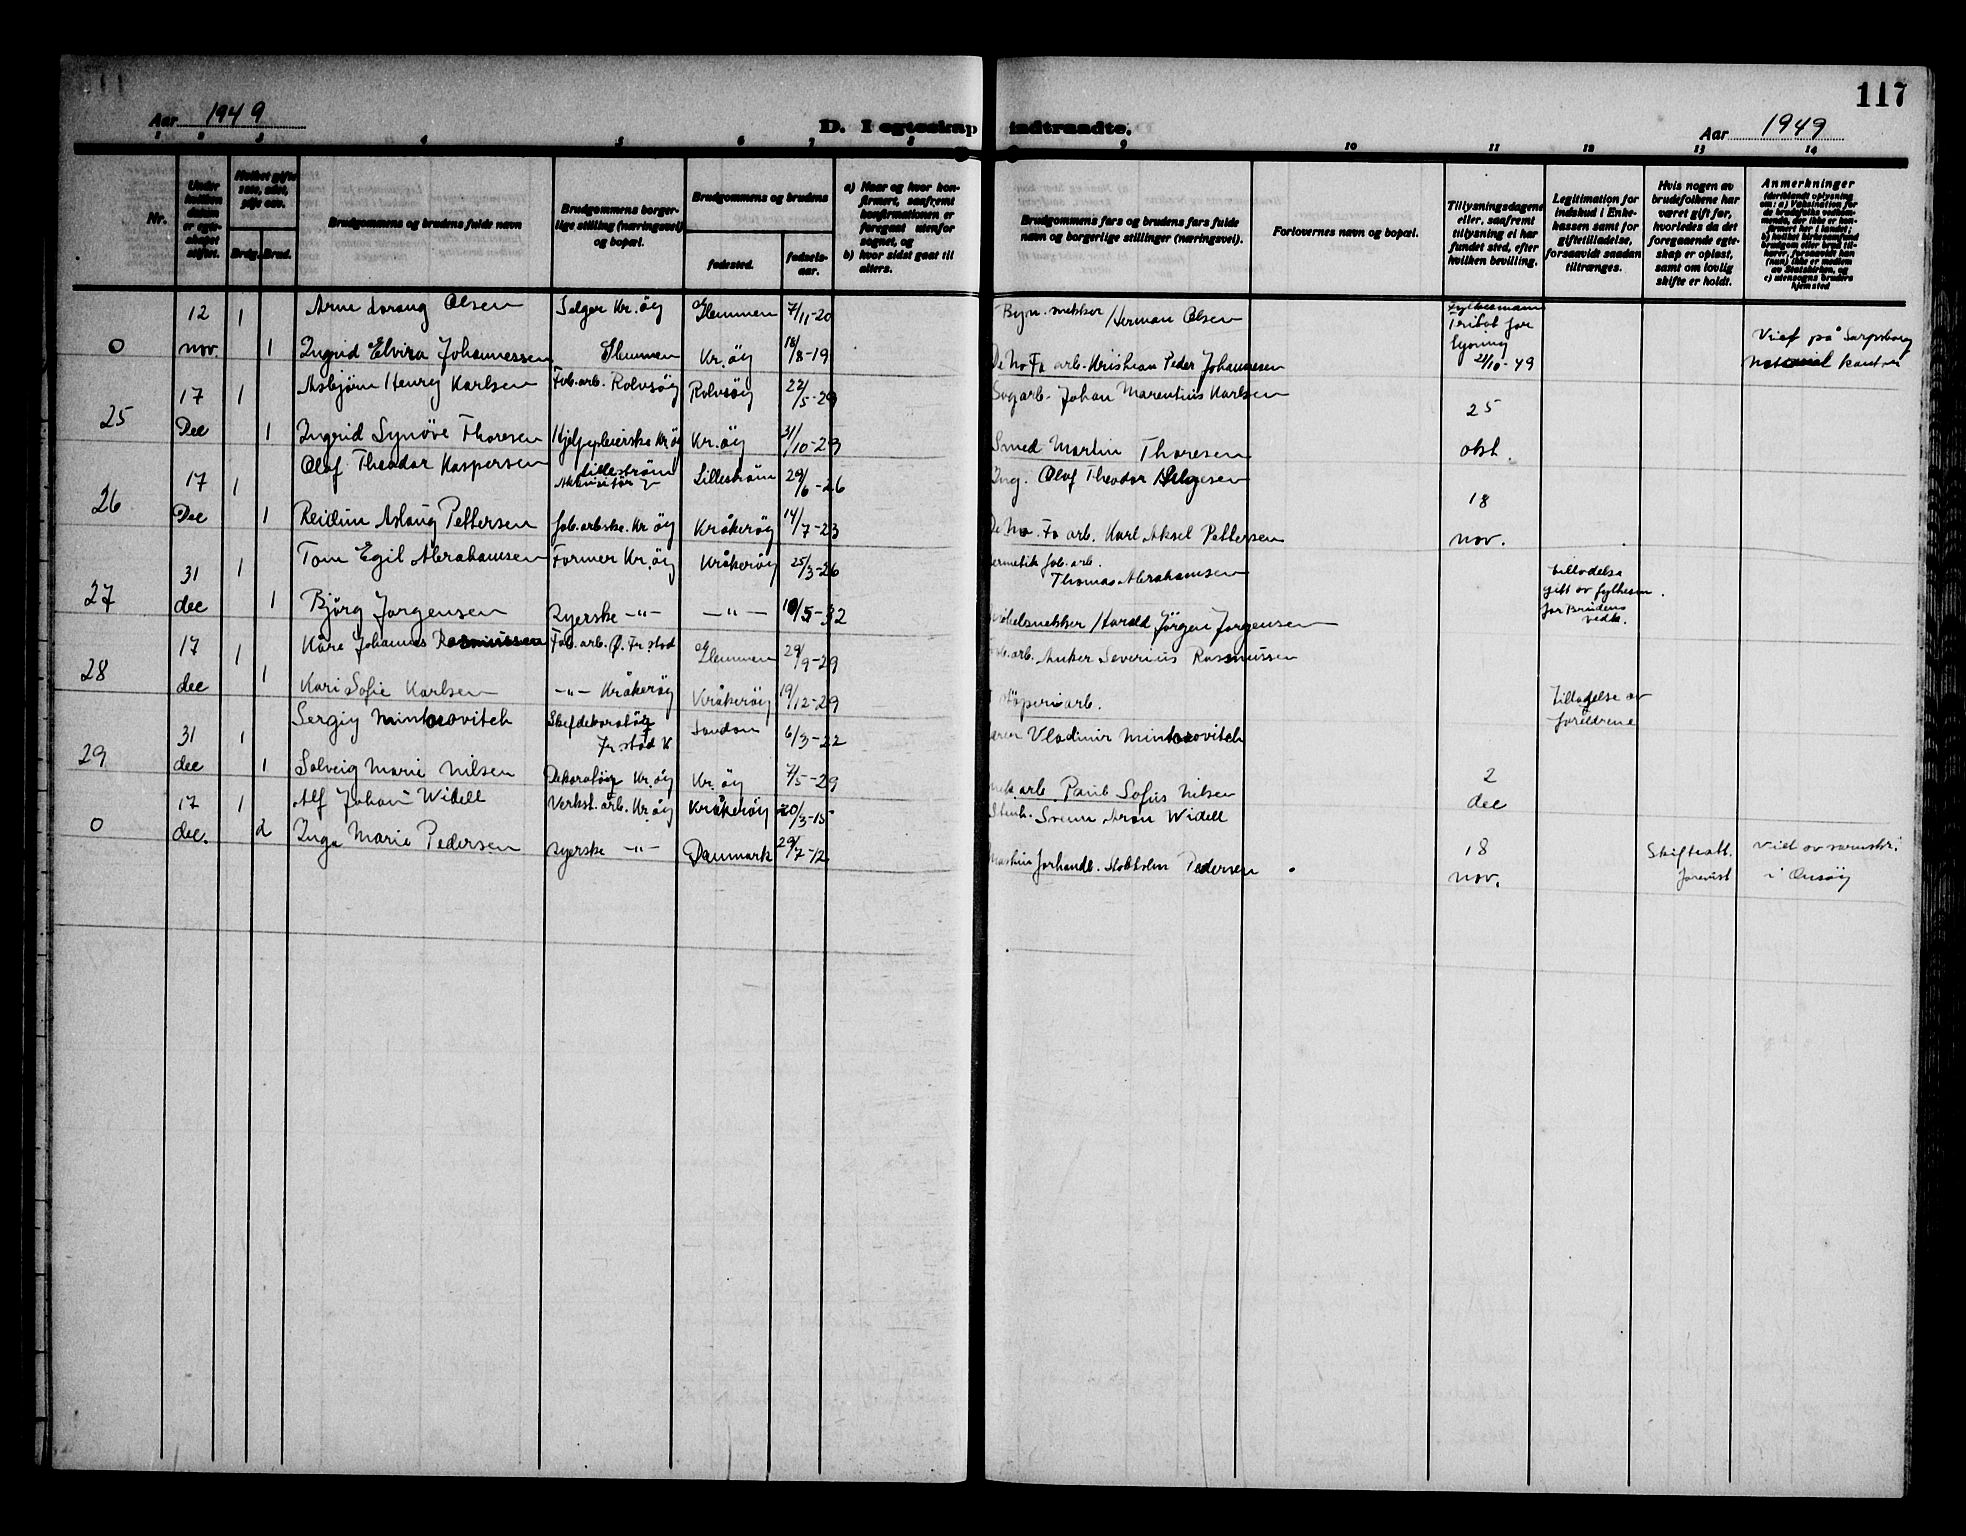 117
Aar 1949
D. I egteskap indtraadte.
Aar 1949
1 2 3 4 5 6 7 8 9 10 11 12 13 14
Nr.
Under hvilken datum er egteskapet stiftet.
Hvilket gifte: 1ste, 2det, 3dje osv.
Brdg. Brud.
Brudgommens og brudens fulde navn
Brudgommens borgerlige stilling (næringsvei) og bopæl.
Brudgommens og brudens
fødested.
fødselsaar.
a) Naar og hvor konfirmert, saafremt konfirmationen er foregaat utenfor sognet, og
b) hvor sidst gaat til alters.
Brudgommens fars og brudens fars fulde navn og borgerlige stillinger (næringsvei).
Forlovernes navn og bopæl.
Tillysningsdagene eller, saafremt tillysning ei har fundet sted, efter hvilken bevilling.
Legitimation for indskud i Enkekassen samt for giftetilladelse, forsaavidt saadan tiltrænges.
Hvis nogen av brudefolkene har været gift før, hvorledes da det foregaaende egteskap er opløst, samt om lovlig skifte er holdt.
Anmerkninger
12 1 Arne Lorang Olsen Selger Kr.øy Glemmen 7/11-20 Herman Olsen
0 nov. 1 Ingrid Elvira Johannessen Glemmen Kr.øy 18/8-19 De No Fa arb. Kristian Peder Johannesen 21/10-49 Viet på Sarpsborg
17 1 Asbjørn Henry Karlsen Fab.arb. Rolvsøy Rolvsøy 22/5-23 Sagarb. Johan Marentius Karlsen
25 Dec 1 Ingrid Synøve Thoresen Hjelpepleierske Kr.øy Kr.øy 31/10-23 Smed Martin Thoresen 25 okt.
17 1 Olaf Theodor Kaspersen Lillestrøm Lillestrøm 29/6-26 Ing. Olaf Theodor
26 Dec 1 Reidun Aslaug Pettersen fab.arbske. Kr.øy Kråkerøy 14/7-23 De No. Fa arb. Karl Aksel Pettersen 18 nov.
31 1 Tom Egil Abrahamsen Former Kr.øy Kråkerøy 25/3-26 ermetik fab.arb. Thomas Abrahamsen
27 dec 1 Bjørg Jørgensen Syerske -"- -"- 10/5-32 Harald Jørgen Jørgensen
tilladelse gitt av fylkesm. for Brudens vedk.
17 1 Kåre Johannes Rasmussen Fab.arb. Ø. Fr.stad Glemmen 29/9-29 arb. Anker Severius Rasmussen
28 dec 1 Kari Sofie Karlsen -"- Kråkerøy Kråkerøy 19/12-29 støperiarb.
Tilladelse av foreldrene
31 1 Sergiy Mintorovitch Fr.stad London 6/3-22 Vladimir Mintorovitch
29 dec 1 Solveig Marie Nilsen Dekoratør Kr.øy Kr.øy 7/5-29 arb. Paul Sofus Nilsen 2 dec
17 1 Alf Johan Widell Verkst.arb. Kr.øy Kråkerøy 20/3-15 Stenh. Svenn Aron Widell
0 dec. 2 Inga Marie Pedersen Syerske -"- Danmark 29/7-12 Pedersen 18 nov.
Skifteatt. forevist
Viet av i Onsøy